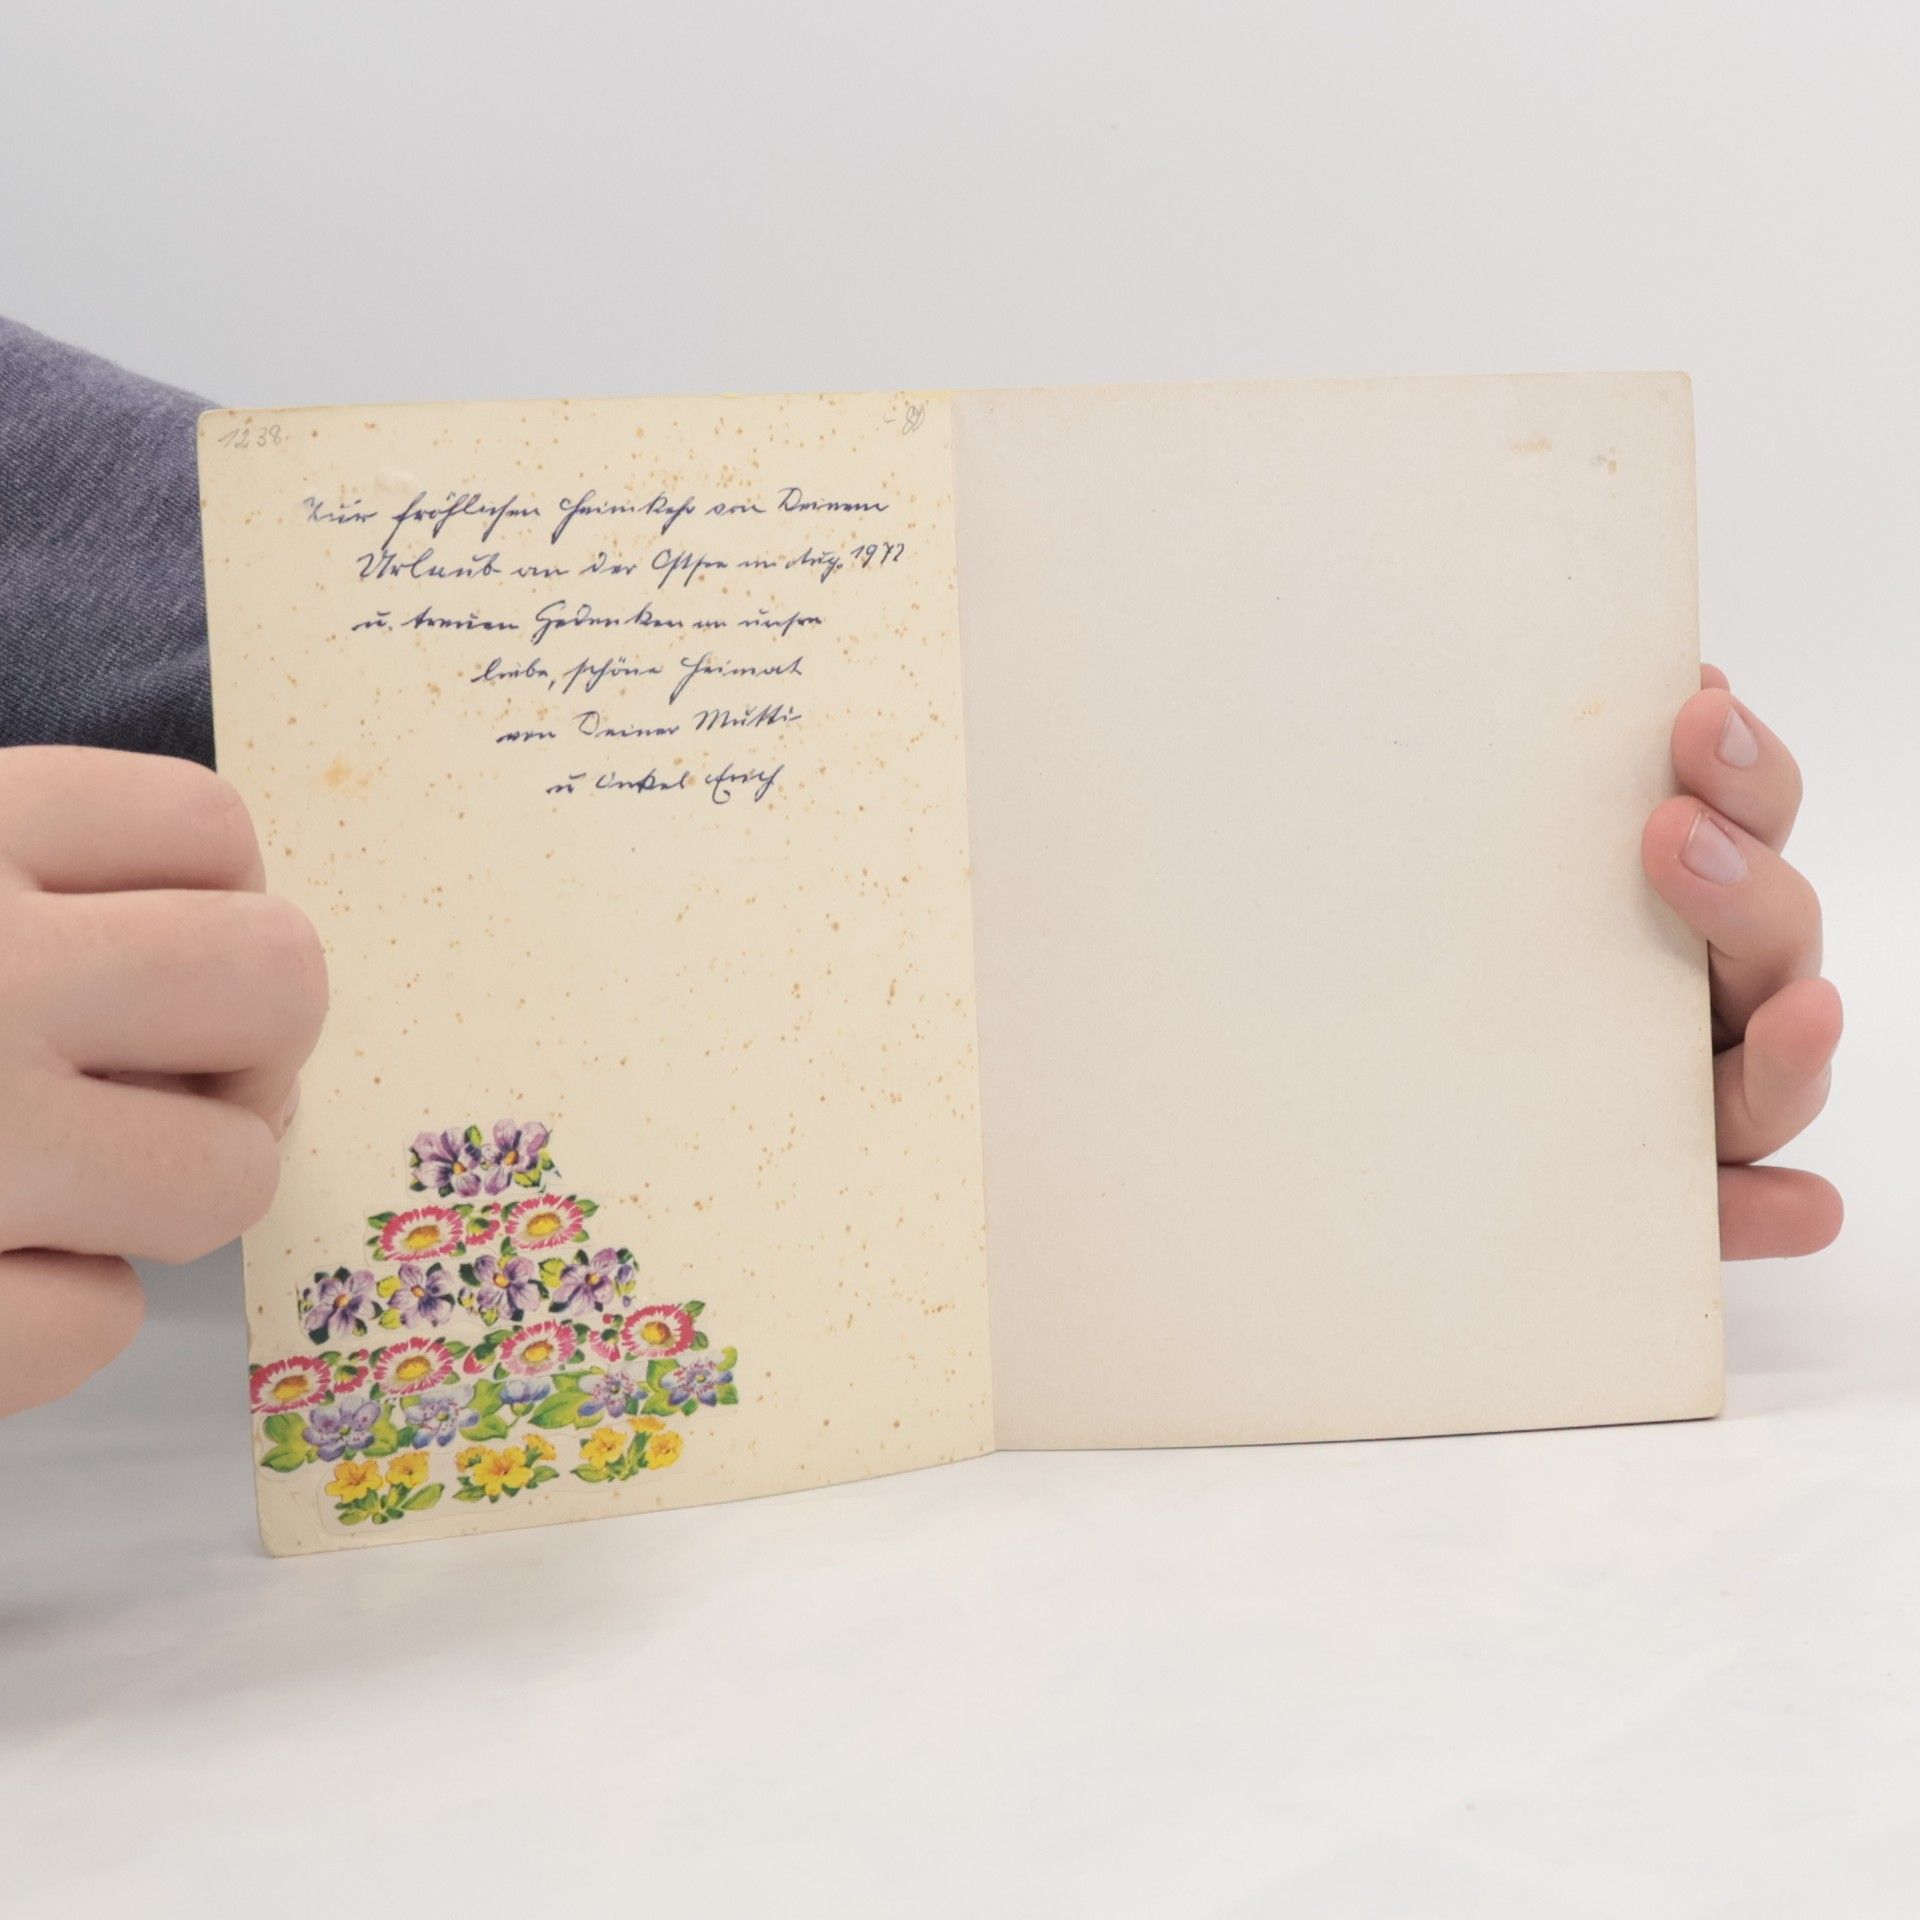 1238
Zur fröhlichen Heimkehr von Deinem
Urlaub an der Ostsee im Aug. 1972
u. treuen Gedenken an unsre
liebe, schöne Heimat
von Deiner Mutti
u Onkel Erich